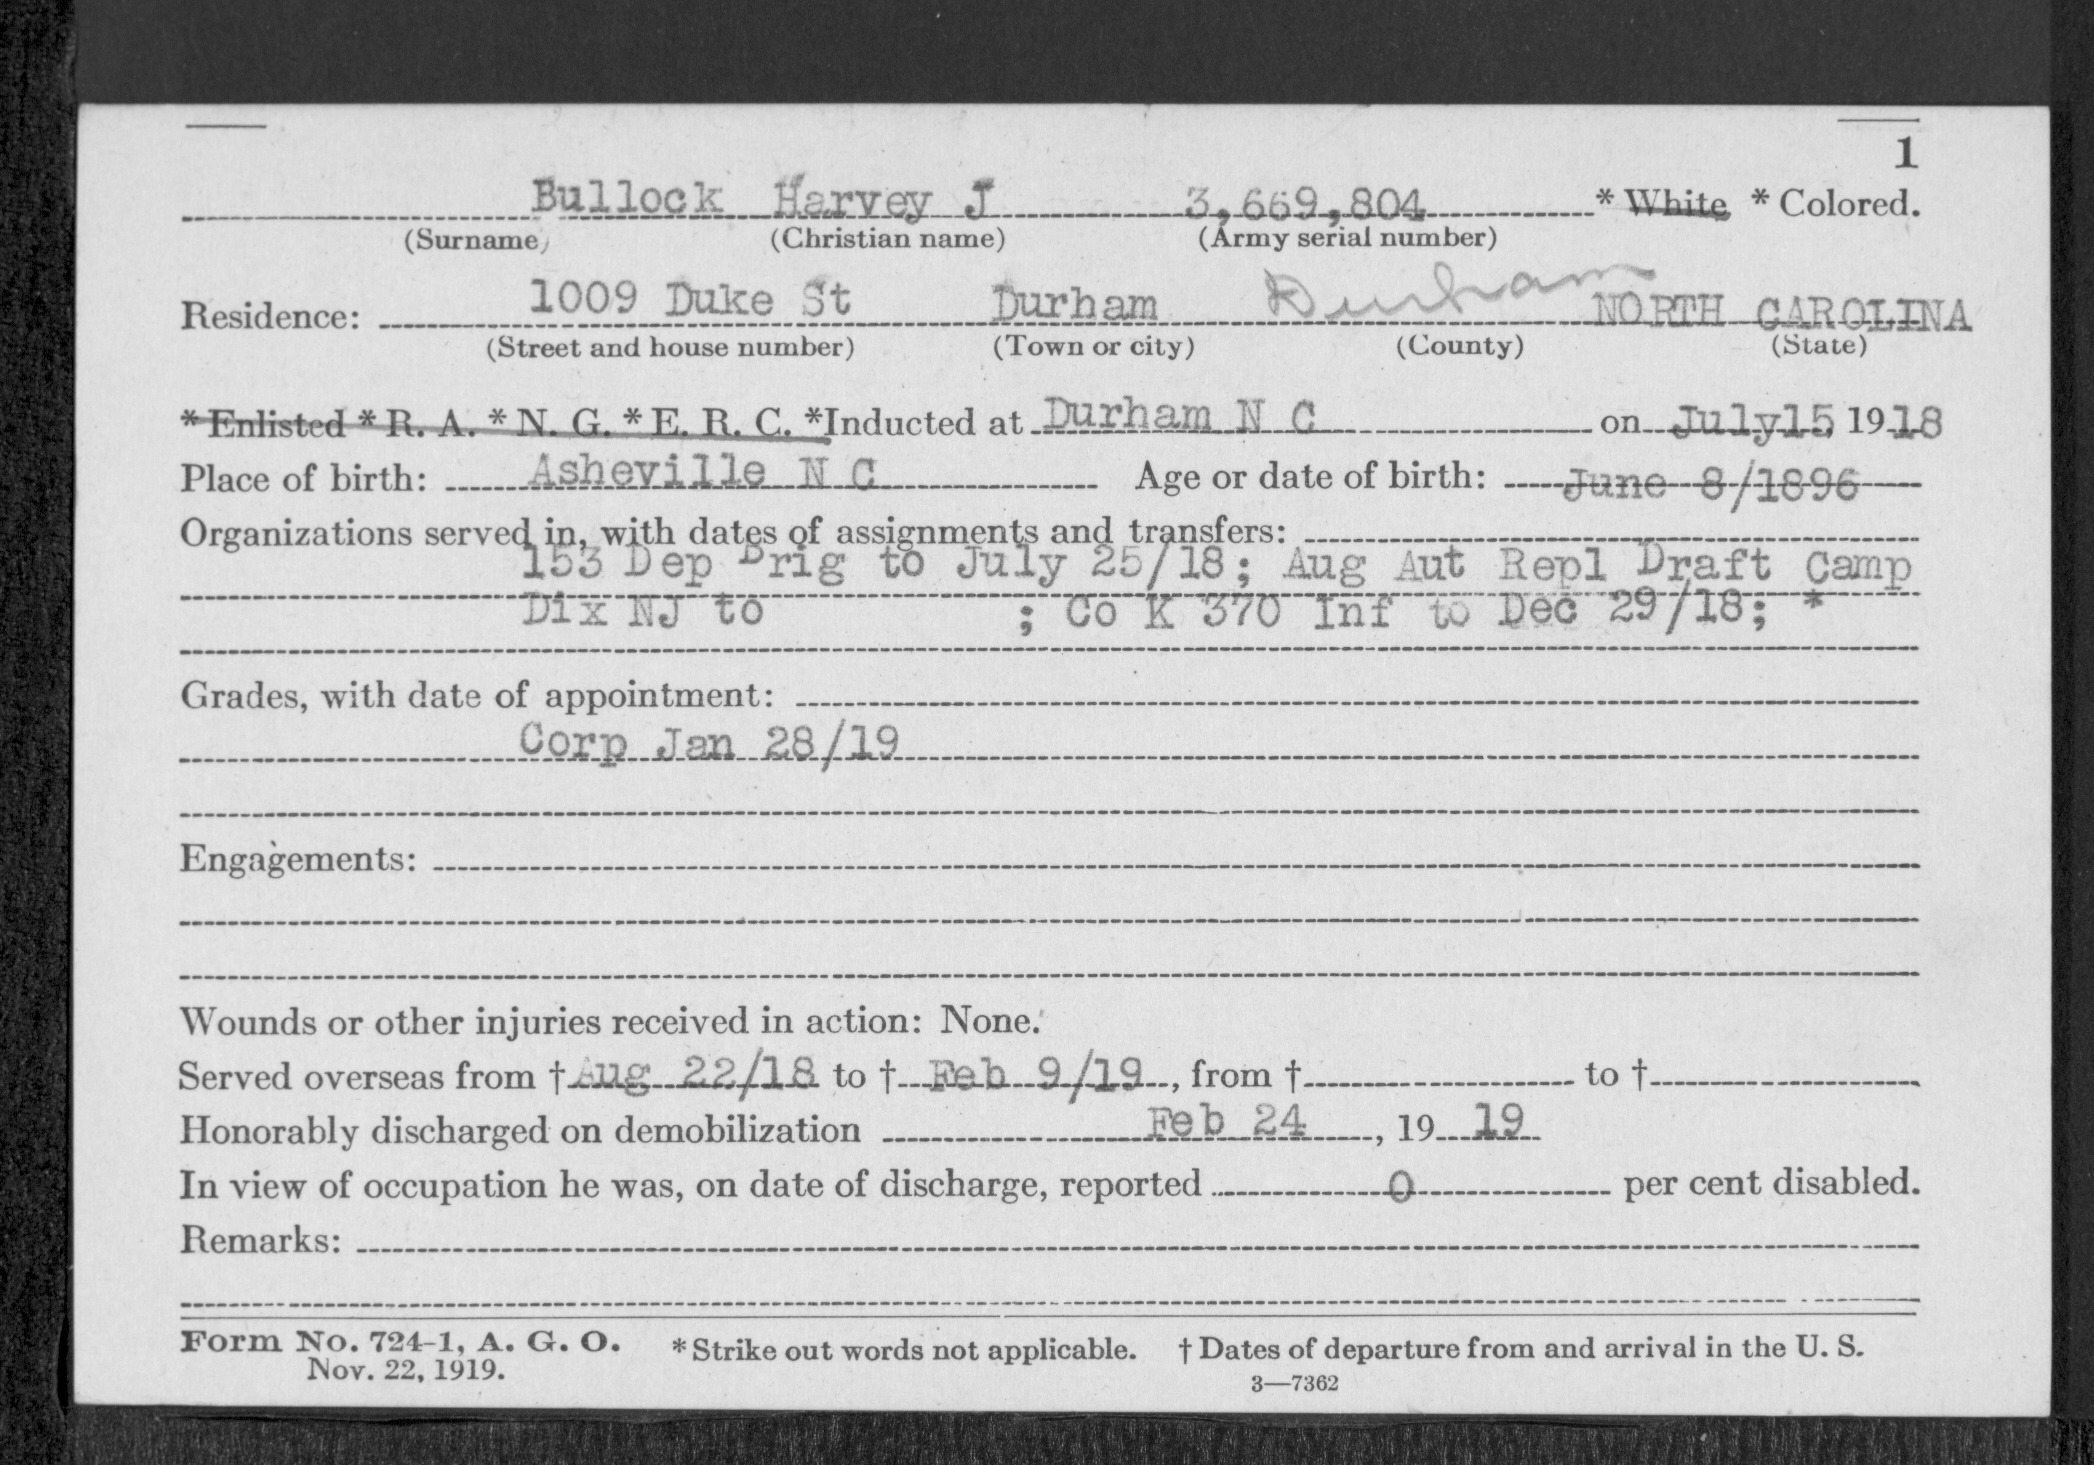 1
Bullock Harvey J 3,669,804 * White * Colored.
(Surname) (Christian name) (Army serial number)
Residence: 1009 Duke St Durham Durham NORTH CAROLINA
(Street and house number) (Town or city) (County) (State)
* Enlisted * R. A. * N. G. * E. R. C. *Inducted at Durham N C on July15 1918
Place of birth: Asheville N C Age or date of birth: June 8/1896
Organizations served in, with dates of assignments and transfers:
153 Dep Brig to July 25/18; Aug Aut Repl Draft Camp
Dix NJ to ; Co K 370 Inf to Dec 29/18; *
Grades, with date of appointment:
Corp Jan 28/19
Engagements:
Wounds or other injuries received in action: None.
Served overseas from † Aug 22/18 to † Feb 9/19, from † to †
Honorably discharged on demobilization Feb 24, 19 19
In view of occupation he was, on date of discharge, reported 0 per cent disabled.
Remarks:
Form No. 724-1, A. G. O. * Strike out words not applicable. † Dates of departure from and arrival in the U. S.
Nov. 22, 1919.
3—7362